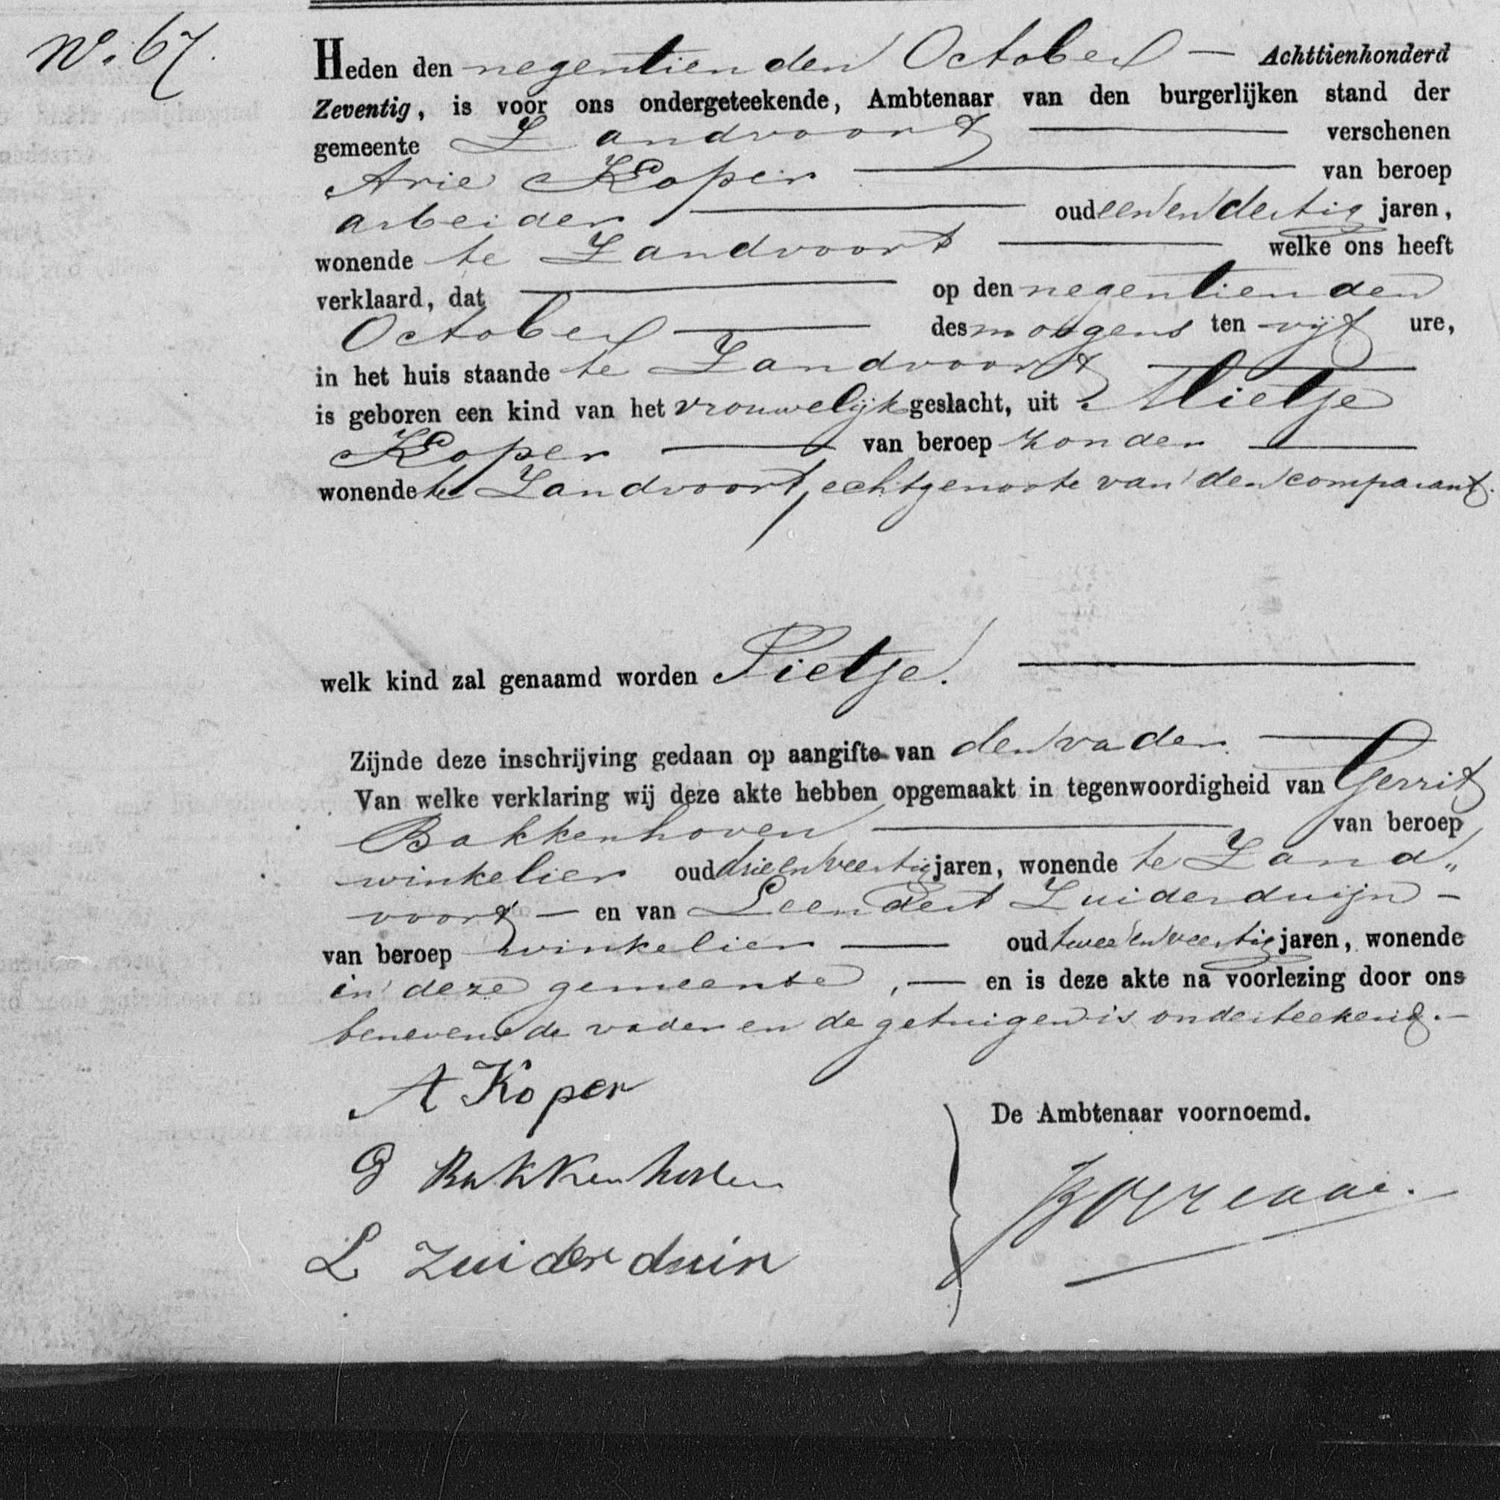 No. 67.
Heden den negentienden October — Achttienhonderd
Zeventig, is voor ons ondergeteekende, Ambtenaar van den burgerlijken stand der
gemeente Zandvoort verschenen
Arie Koper van beroep
arbeider oud een en dertig jaren,
wonende te Zandvoort welke ons heeft
verklaard, dat op den negentienden
October des morgens ten vijf ure,
in het huis staande te Zandvoort
is geboren een kind van het vrouwelijk geslacht, uit Mietje
Koper van beroep zonder
wonende te Zandvoort, echtgenoote van den comparant.
welk kind zal genaamd worden Pietje.
Zijnde deze inschrijving gedaan op aangifte van den vader
Van welke verklaring wij deze akte hebben opgemaakt in tegenwoordigheid van Gerrit
Bakkenhoven van beroep
winkelier oud drie en veertig jaren, wonende te Zand„
voort — en van Leendert Zuiderduijn —
van beroep winkelier — oud twee en veertig jaren, wonende
in deze gemeente, — en is deze akte na voorlezing door ons
benevens de vader en de getuigen is onderteekend. —
A Koper
De Ambtenaar voornoemd.
G Bakkenhoven
L Zuiderduin